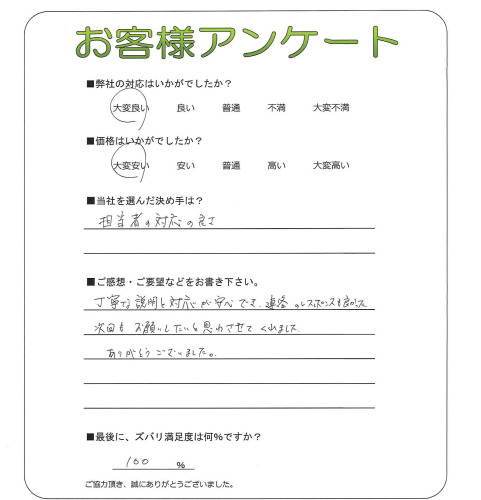 お客様アンケート
■弊社の対応はいかがでしたか？
大変良い 良い 普通 不満 大変不満
■価格はいかがでしたか？
大変安い 安い 普通 高い 大変高い
■当社を選んだ決め手は？
担当者の対応の良さ
■ご感想・ご要望などをお書き下さい。
丁寧な説明と対応が安心です。連絡のレスポンスも良かった
次回もお願いしたいと思わさせてくれました。
ありがとうございました。
■最後に、ズバリ満足度は何%ですか？
100 %
ご協力頂き、誠にありがとうございました。